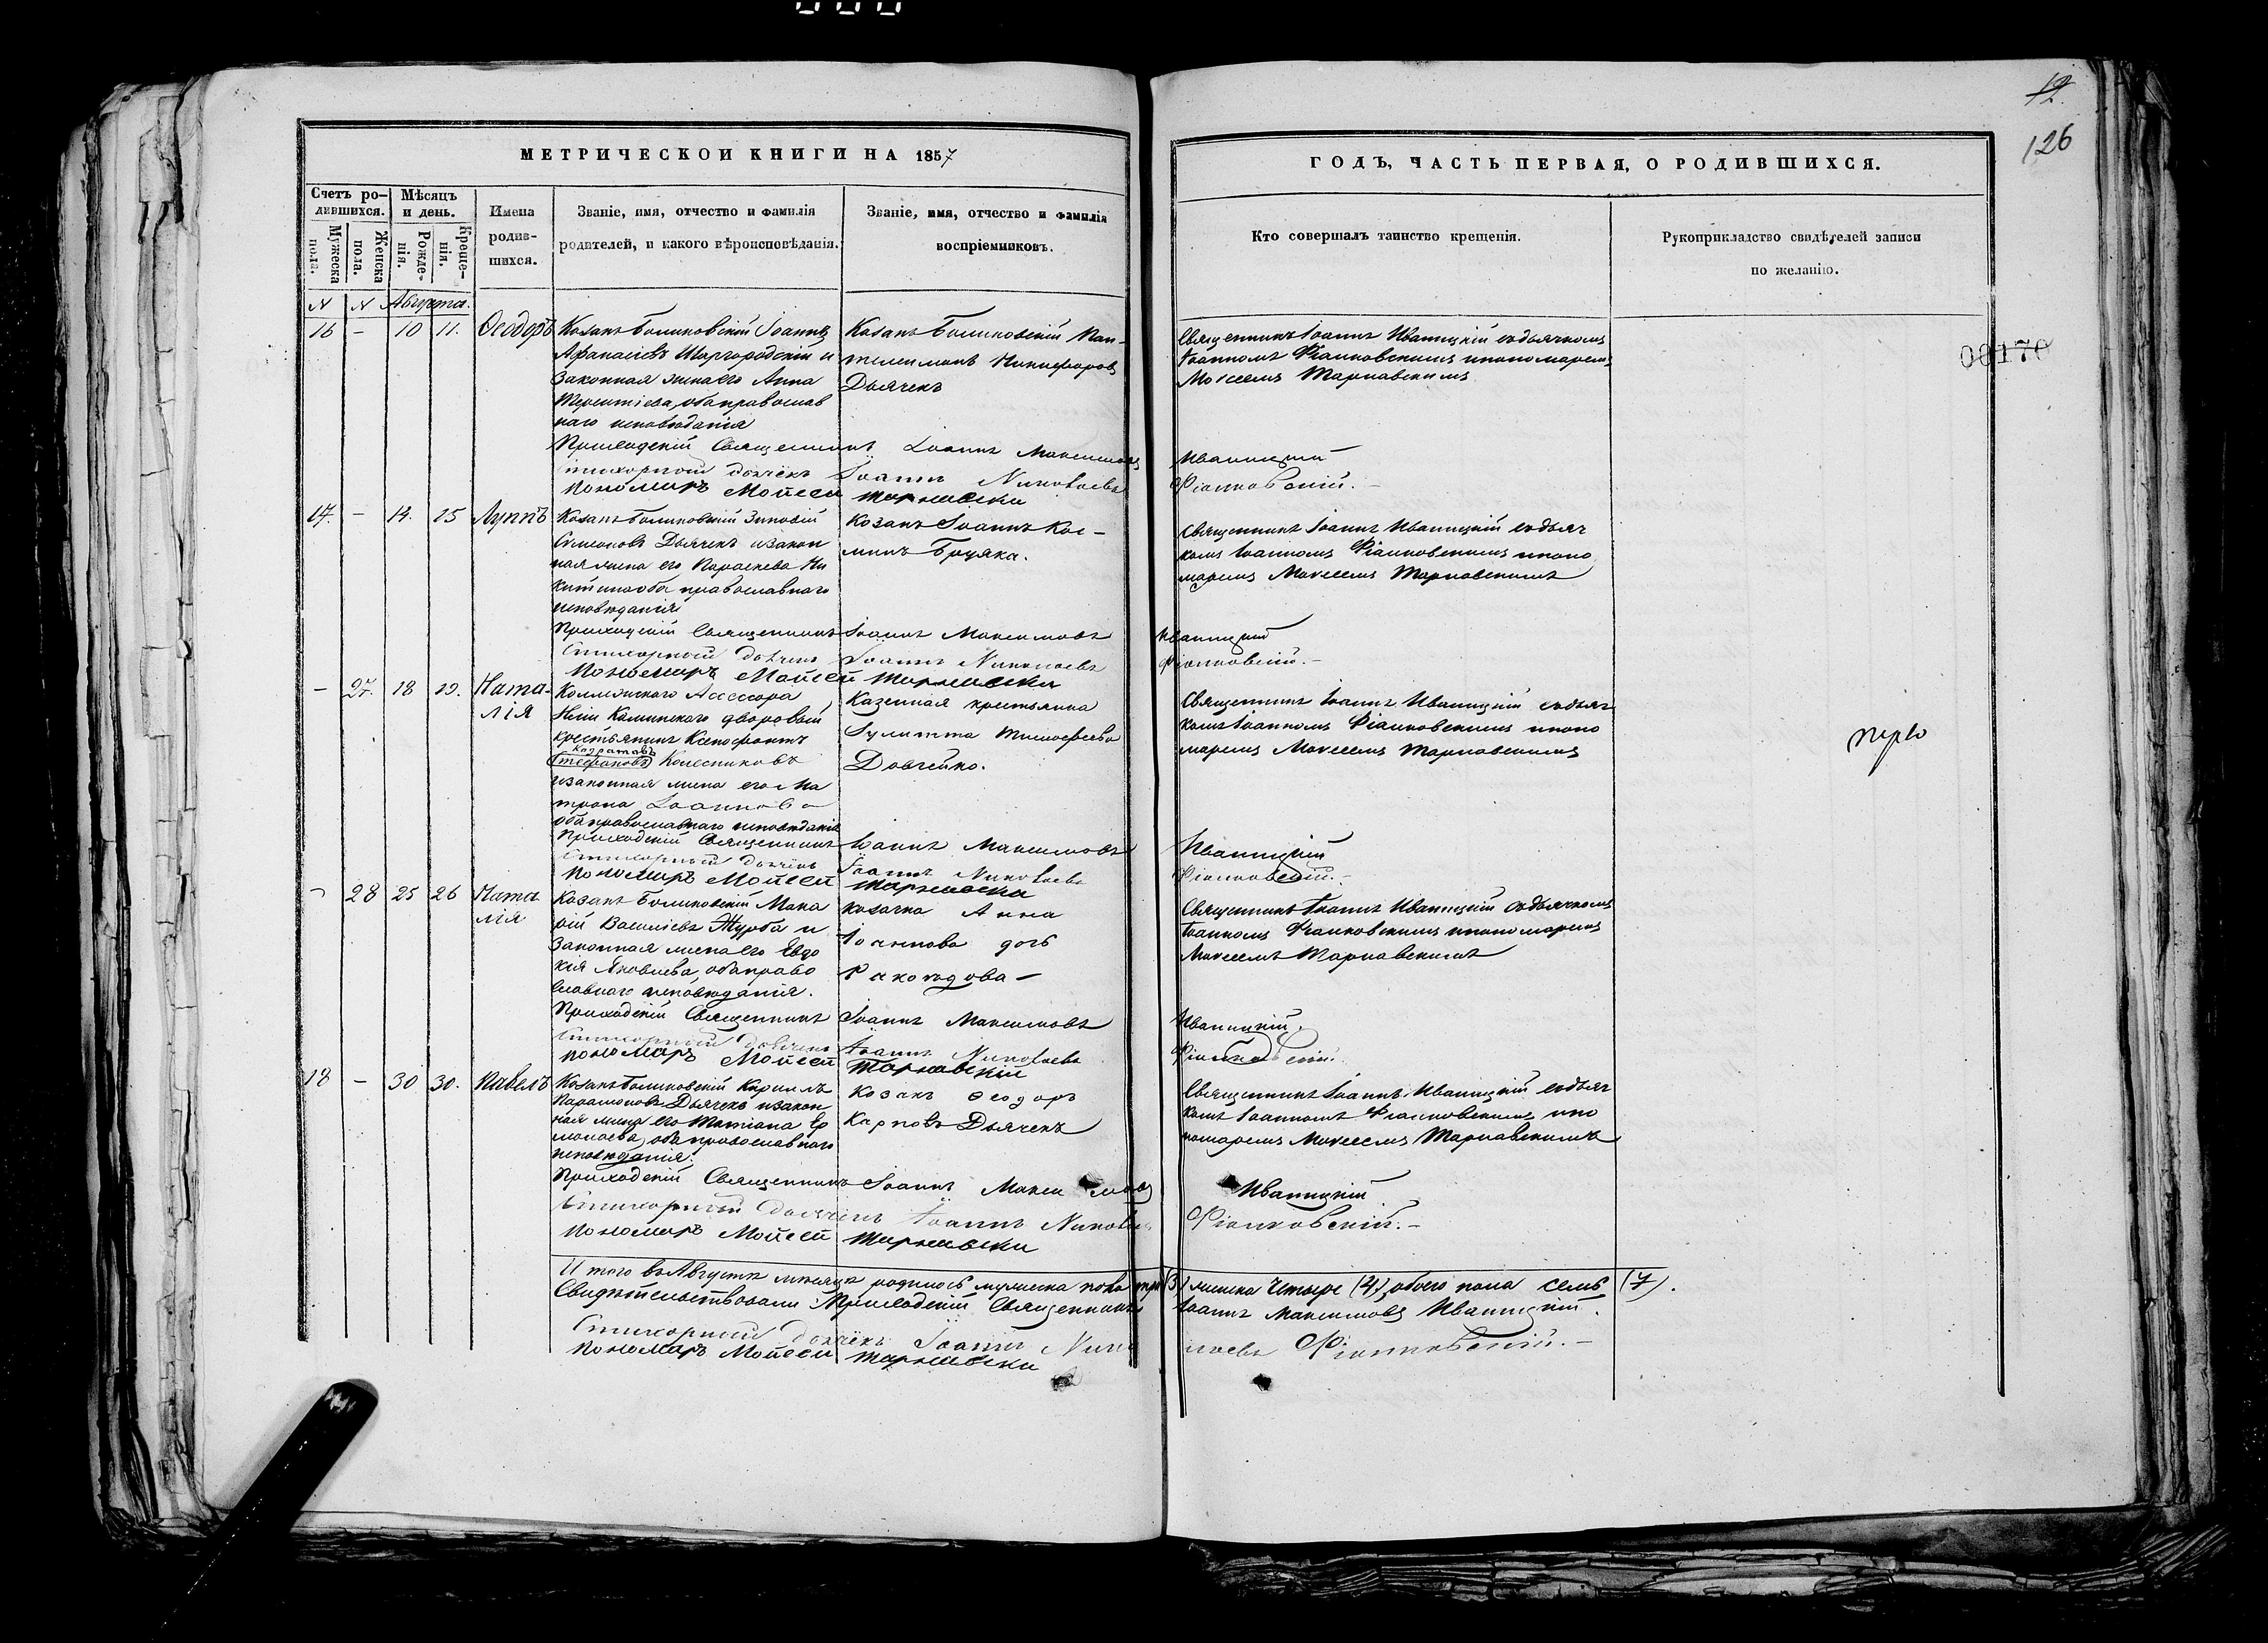 12.
126
МЕТРИЧЕСКОЙ КНИГИ НА 1857
ГОДЪ, ЧАСТЬ ПЕРВАЯ, О РОДИВШИХСЯ.
Счетъ родившихся.
Мужеска пола.
Женска пола.
Мѣсяцъ и день.
Рожденія.
Крещенія.
Имена родившихся.
Званіе, имя, отчество и фамилія родителей, и какого вѣроисповѣданія.
Званіе, имя, отчество и фамилія воспріемниковъ.
Кто совершалъ таинство крещенія.
Рукоприкладство свидѣтелей записи по желанію.
N N Августа.
16 – 10 11. Ѳеодоръ
Козакъ Голиковскій Іоаннъ
Афанасіевъ Шаргородскій и
законная жена его Анна
Терентіева, оба православ
наго исповѣданія
Козакъ Голиковскій Пан-
телеимонъ Никифоровъ
Дьяченъ
Священникъ Іоаннъ Иваницкій съ дьячкомъ
Іоанномъ Фіалковскимъ и пономаремъ
Моѵсеемъ Тарнавскимъ
08170
Приходскій Священникъ Іоаннъ Максимовъ Иваницкій
Стихарный дьячекъ Іоаннъ Николаевъ Фіалковскій.–
Пономаръ Мойсей Тарнавски
17. – 14. 15 Луппъ
Козакъ Голиковскій Зиновій
Симеоновъ Дьяченъ и закон
ная жена его Параскева Ни
китина оба православнаго
исповѣданія
Козакъ Іоаннъ Кос-
минъ Бруяка.
Священникъ Іоаннъ Иваницкій съ дьяч
комъ Іоанномъ Фіалковскимъ и поно
маремъ Моѵсеемъ Тарнавскимъ
Приходскій Священникъ Іоаннъ Максимовъ Иваницкій
Стихарный дьячекъ Іоаннъ Николаевъ Фіалковскій.–
Пономаръ Мойсей Тарнавски
– 27. 18 19. Ната-
лія
Коллежскаго Ассесора
Каминскаго дворовый
крестьянинъ Ксенофонтъ
Кодратовъ
(Стефановъ) Колесниковъ
и законная жена его Ма
трона Іоаннова
оба православнаго исповѣданія
Казенная крестьянка
Іулитта Тимофеева
Довгейко.
Священникъ Іоаннъ Иваницкій съ дьяч
комъ Іоанномъ Фіалковскимъ и поно
маремъ Моѵсеемъ Тарнавскимъ
Приходскій Священникъ Іоаннъ Максимовъ Иваницкій
Стихарный дьячекъ Іоаннъ Николаевъ Фіалковскій.–
Пономаръ Мойсей Тарнавски
– 28 25 26 Ната
лія
Козакъ Голиковскій Мака
рій Василіевъ Журба и
законная жена его Евдо
кія Яковлева, оба право
славнаго исповѣданія.
козачка Анна
Іоаннова дочь
Ракоѣдова –
Священникъ Іоаннъ Иваницкій съ дьячкомъ
Іоанномъ Фіалковскимъ и пономаремъ
Моѵсеемъ Тарнавскимъ
Приходскій Священникъ Іоаннъ Максимовъ Иваницкій.
Стихарный дьячекъ Іоаннъ Николаевъ Фіалковскій.
пономаръ Мойсей Тарнавскій
18 – 30 30. Павелъ
Козакъ Голиковскій Кириллъ
Парамоновъ Дьяченъ и закон
ная жена его Татіана Ер
молаева, оба православнаго
исповѣданія.
Козакъ Ѳеодоръ
Карповъ Дьяченъ
Священникъ Іоаннъ Иваницкій съ дьяч
комъ Іоанномъ Фіалковскимъ и по
номаремъ Моѵсеемъ Тарнавскимъ
Приходскій Священникъ Іоаннъ Максимовъ Иваницкій
Стихарный дьячекъ Іоаннъ Николаевъ Фіалковскій.–
Пономаръ Мойсей Тарнавски
Итого въ Августѣ мѣсяцѣ родилось мужеска пола три (3) женска четыре (4), обоего пола семь (7).
Свидѣтельствовали Приходскій Священникъ Іоаннъ Максимовъ Иваницкій.
Стихарный дьячекъ Іоаннъ Николаевъ Фіалковскій.–
Пономаръ Мойсей Тарнавски